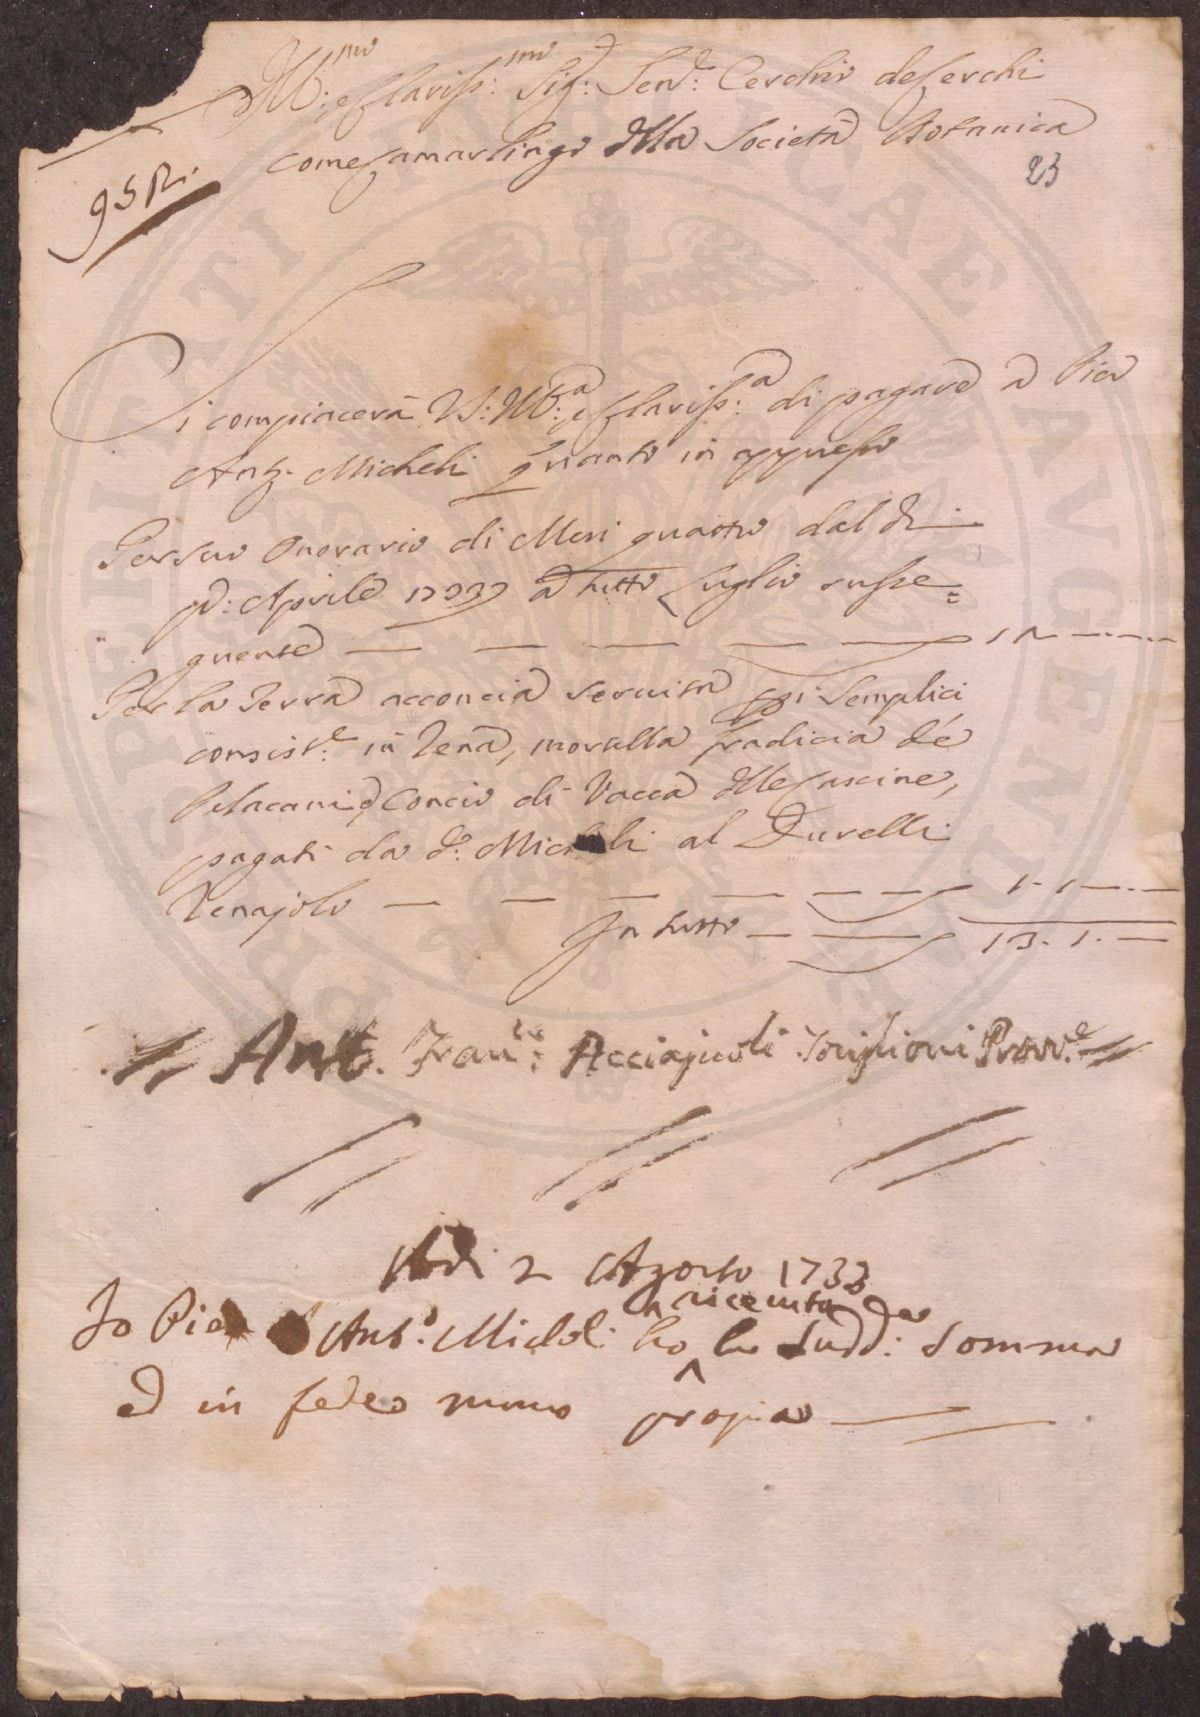 Ill:mo e Clariss:mo Sig:r Sen:r Cerchio de Cerchi
come Camarlingo della Società Botanica
23
95 R.
Si compiacerà V: Ill:a e Clariss:a di pagare a Pier
Ant. Micheli quanto in appresso
Per suo Onorario di Mesi quattro dal dì
p:o Aprile 1733 a tutto Luglio susse=
guente — — — — — 12 —.—.—
Per la Terra acconcia servita p i Semplici
consist:e in Rena, mortella fradicia de
Pelacani, e Concio di Vacca delle Cascine,
pagati da d:o Micheli al Durelli
Renajolo — — — — — — 1.1—.—
In tutto — — 13.1.—
Ant. Fran:co Acciajuoli Provv:e
Adì 2 Agosto 1733
Io Pier Ant:o Micheli ho ricevuto la sudd:a somma
ed in fede mano propria
PERICAE AVGENDAE